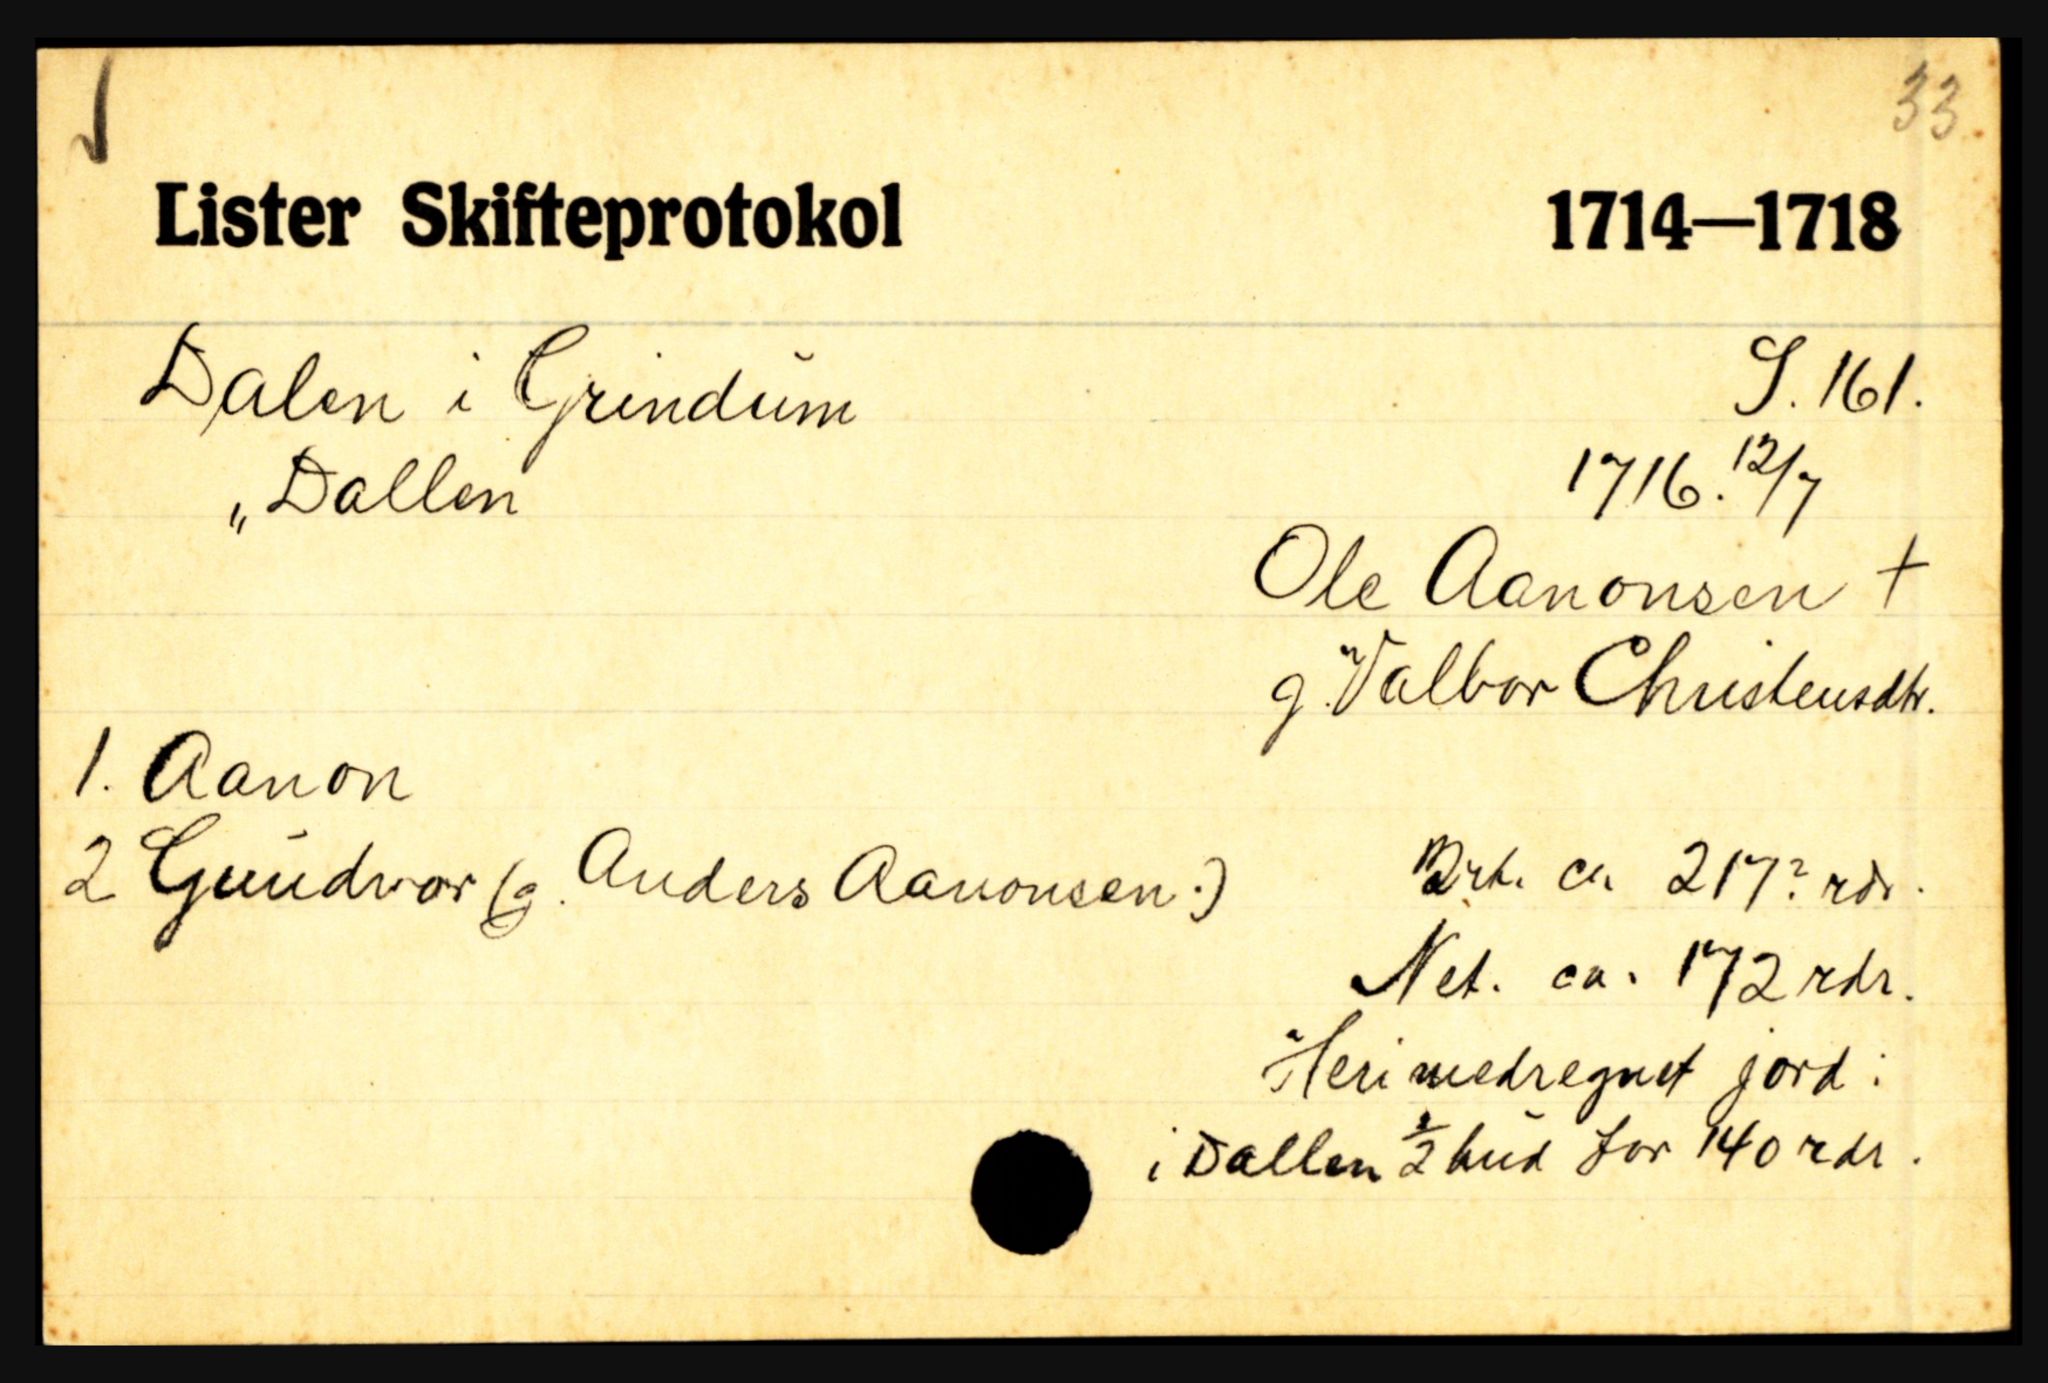 33
Lister Skifteprotokol 1714—1718
Dalen i Grindum S. 161.
„Dallen 1716. 12/7
Ole Aanonsen +
g. Valbor Christensdtr.
1. Aanon
2 Gundvor (g. Anders Aanonsen.) Brt. ca 217? rdr.
Net. ca. 172 rdr.
Heri medregnet jord:
i Dallen ½ hud for 140 rdr.